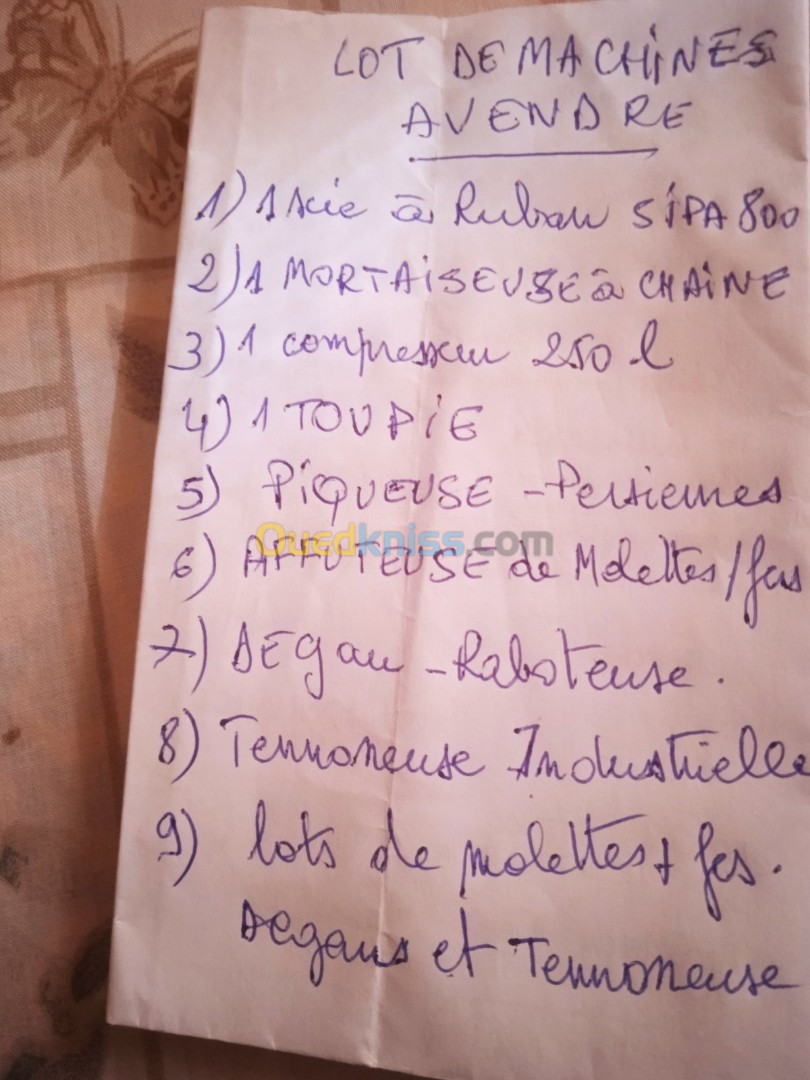 LOT DE MACHINES
A VENDRE
1) 1 scie à Ruban SIPA 800
2) 1 MORTAISEUSE à CHAINE
3) 1 compresseur 250 l
4) 1 TOUPIE
5) PIQUEUSE - Persiennes
6) AFFUTEUSE de Molettes / fers
Ouedkniss.com
7) DEgau - Raboteuse.
8) Tennoneuse Industrielle
9) lots de molettes + fers.
Degaus et Tennoneuse